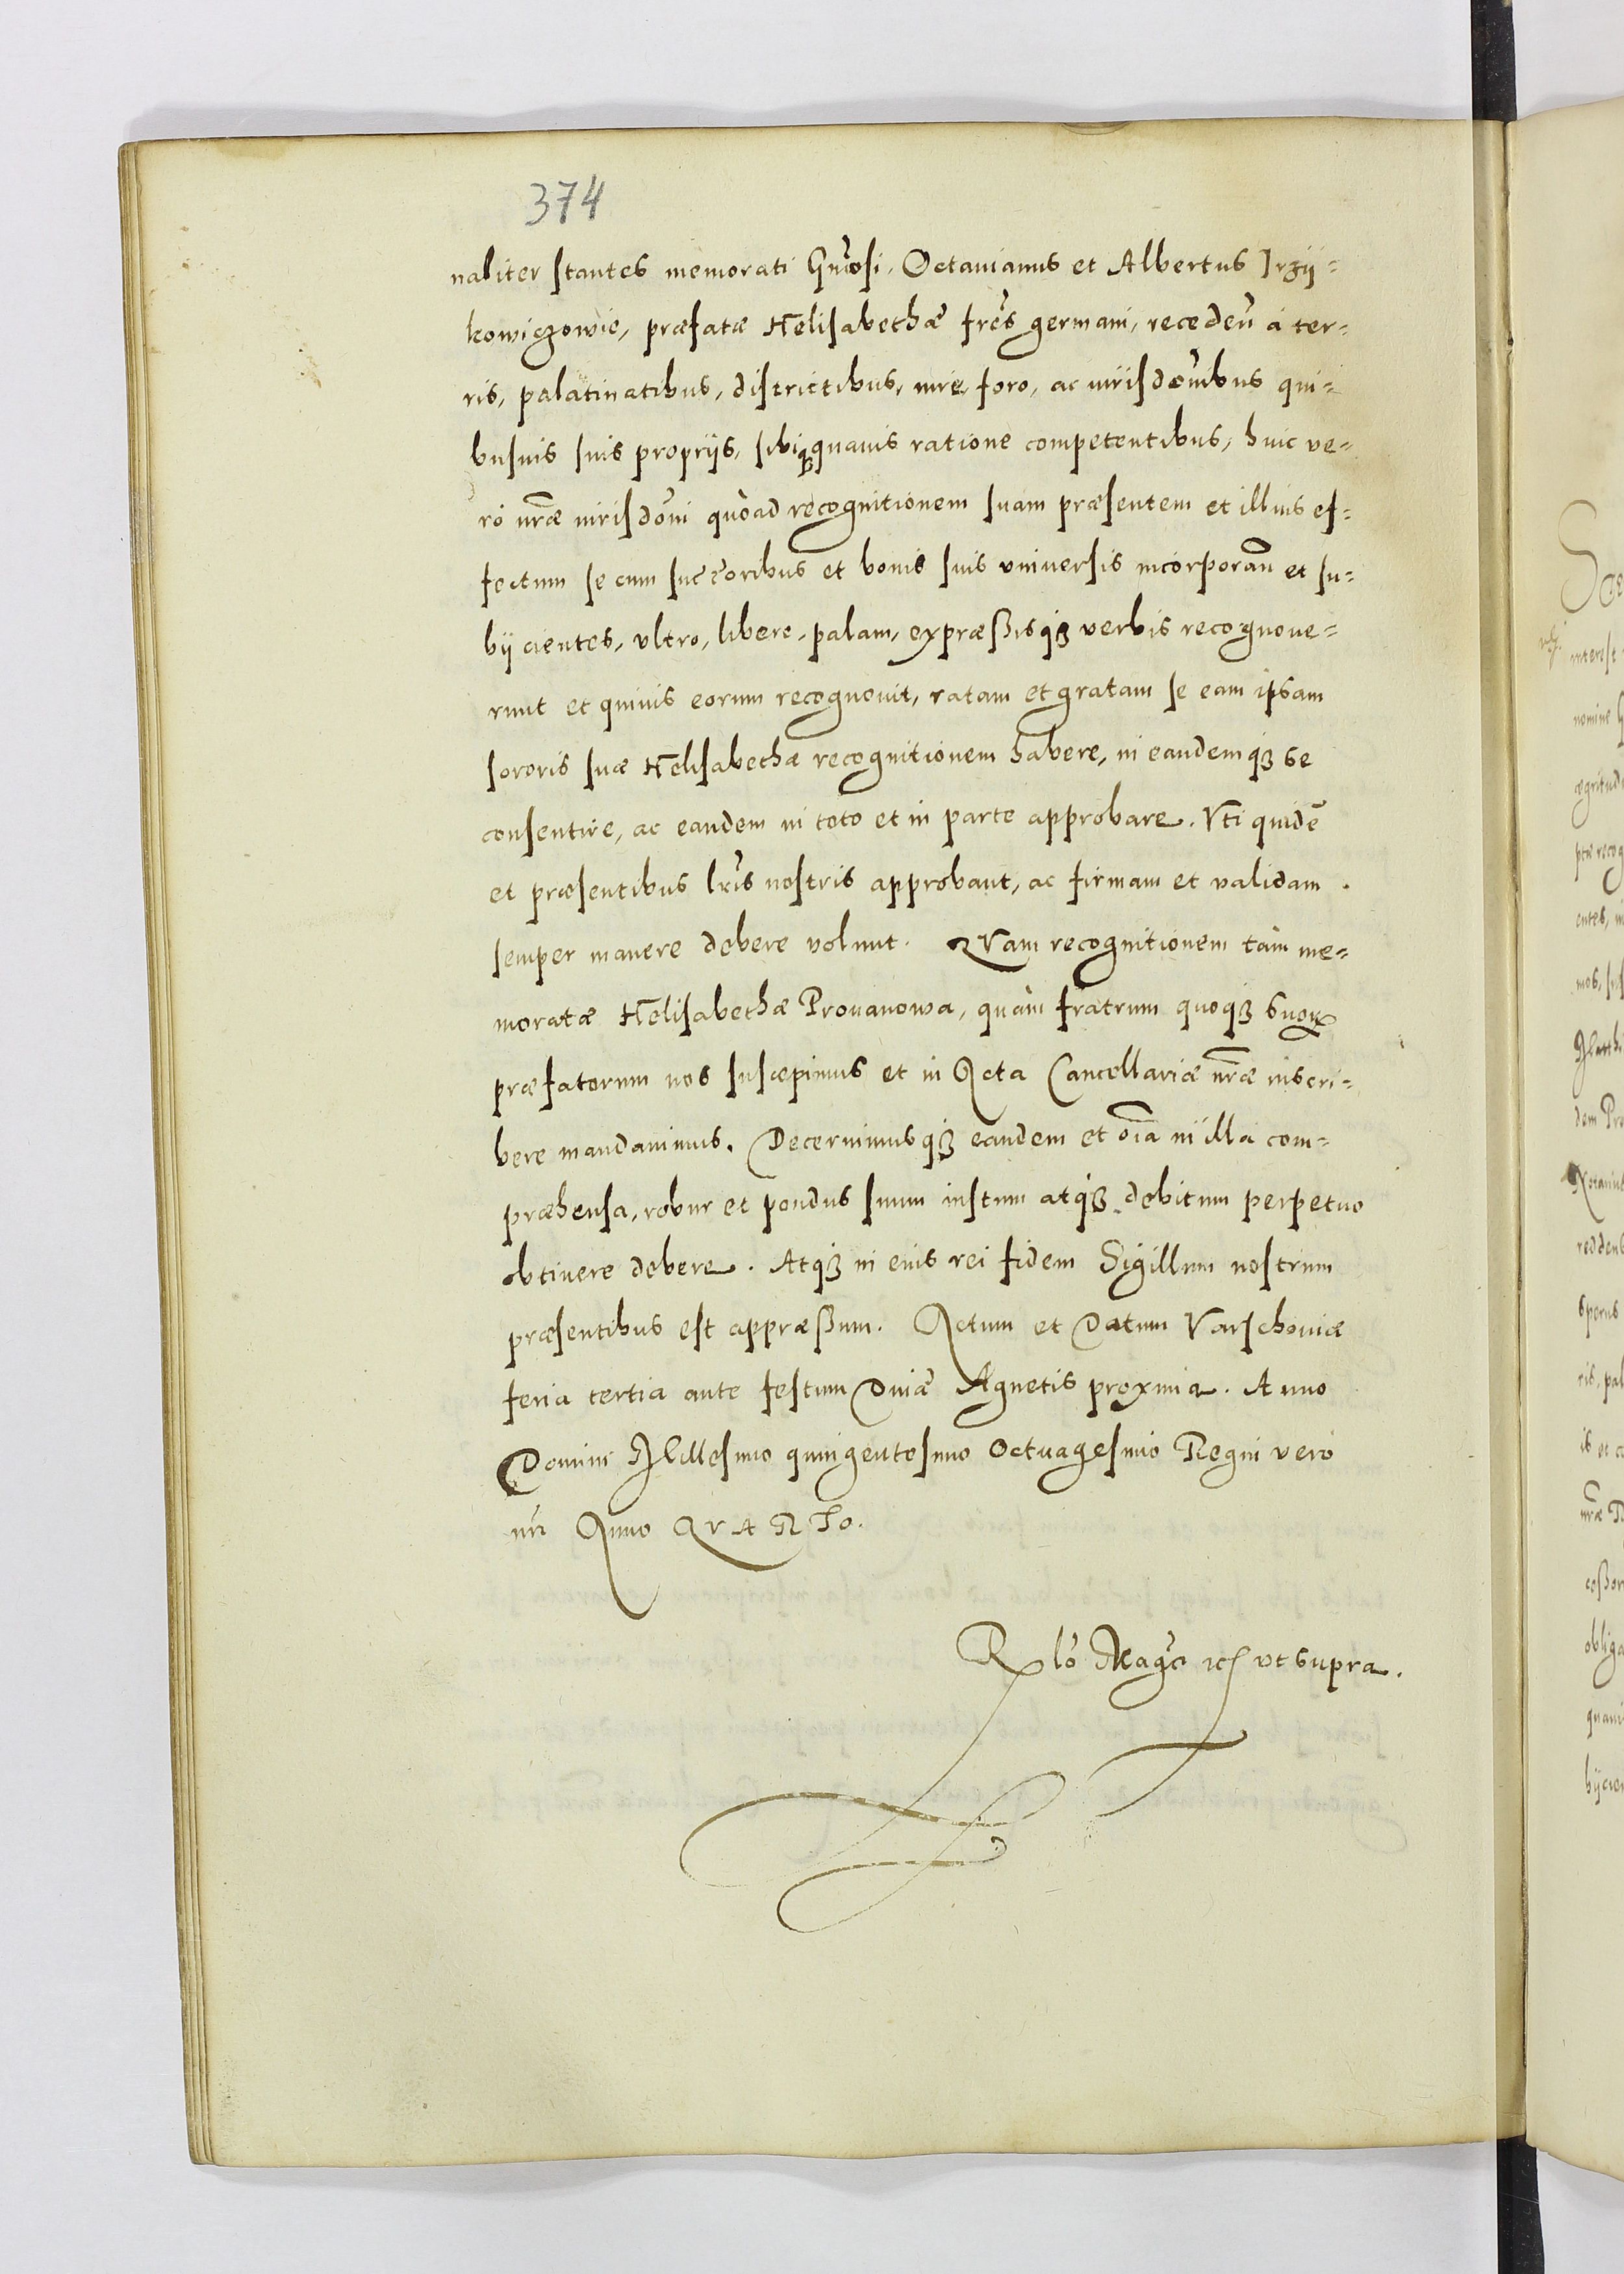 374
naliter stantes memorati Gnrosi, Octauianus et Albertus Irzÿ=
kowiczowie, præfatæ Helisabethæ frēs germani, receden̄ à ter=
ris, palatinatibus, districtibus, iure, foro, ac iurisdōnibus qui=
busuis suis proprijs, sibiq̨ quauis ratione competentibus, huic ve=
rò nr̄æ iurisdōni quoad recognitionem suam præsentem et illius ef=
fectum se cum succ̄oribus et bonis suis vniuersis incorporan̄ et su=
bijcientes, vltro, libere, palam, expræßisqꝫ verbis recognoue=
runt et quiuis eorum recognouit, ratam et gratam se eam ipsam
sororis suæ Helisabethæ recognitionem habere, in eandemqꝫ se
consentire, ac eandem in toto et in parte approbare. Vti quidē
et præsentibus lr̄is nostris approbant, ac firmam et validam
semper manere debere volunt. QVam recognitionem tàm me=
moratæ Helisabethæ Prouanowa, quàm fratrum quoqꝫ suoꝝ
præfatorum nos suscepimus et in Acta Cancellariæ nr̄æ inscri=
bere mandauimus. Decernimusqꝫ eandem et oīa in illa com=
præhensa, robur et pondus suum iustum atqꝫ debitum perpetuo
obtinere debere. Atqꝫ in eius rei fidem Sigillum nostrum
præsentibus est appræßum. Actum et Datum Varschouiæ
feria tertia ante festum Diuæ Agnetis proxima. Anno
Domini Millesimo quingentesimo Octuagesimo Regni verò
nrī Anno QVARTo.
Rlō Magci etc vt supra.